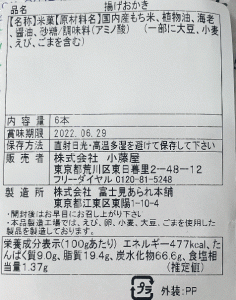 品名 揚げおかき
【名称】米菓【原材料名】国内産もち米、植物油、海老、
醤油、砂糖/調味料(アミノ酸) (一部に大豆、小麦、
えび、ごまを含む)
内容量 6本
賞味期限 2022.06.29
保存方法 直射日光・高温多湿を避けて保存して下さい
販売者 株式会社 小藤屋
東京都荒川区東日暮里2-48-12
フリーダイヤル 0120-81-5248
製造所 株式会社 富士見あられ本舗
東京都江東区東陽1-10-4
・開封後はお早目にお召し上がり下さい
・本品製造工場では、えび、卵、小麦、大豆、ごまを使用した
製品を製造しております。
栄養成分表示(100gあたり) エネルギー477kcal、た
んぱく質9.0g、脂質19.4g、炭水化物66.6g、食塩相
当量1.37g (推定値)
プラ 外装:PP